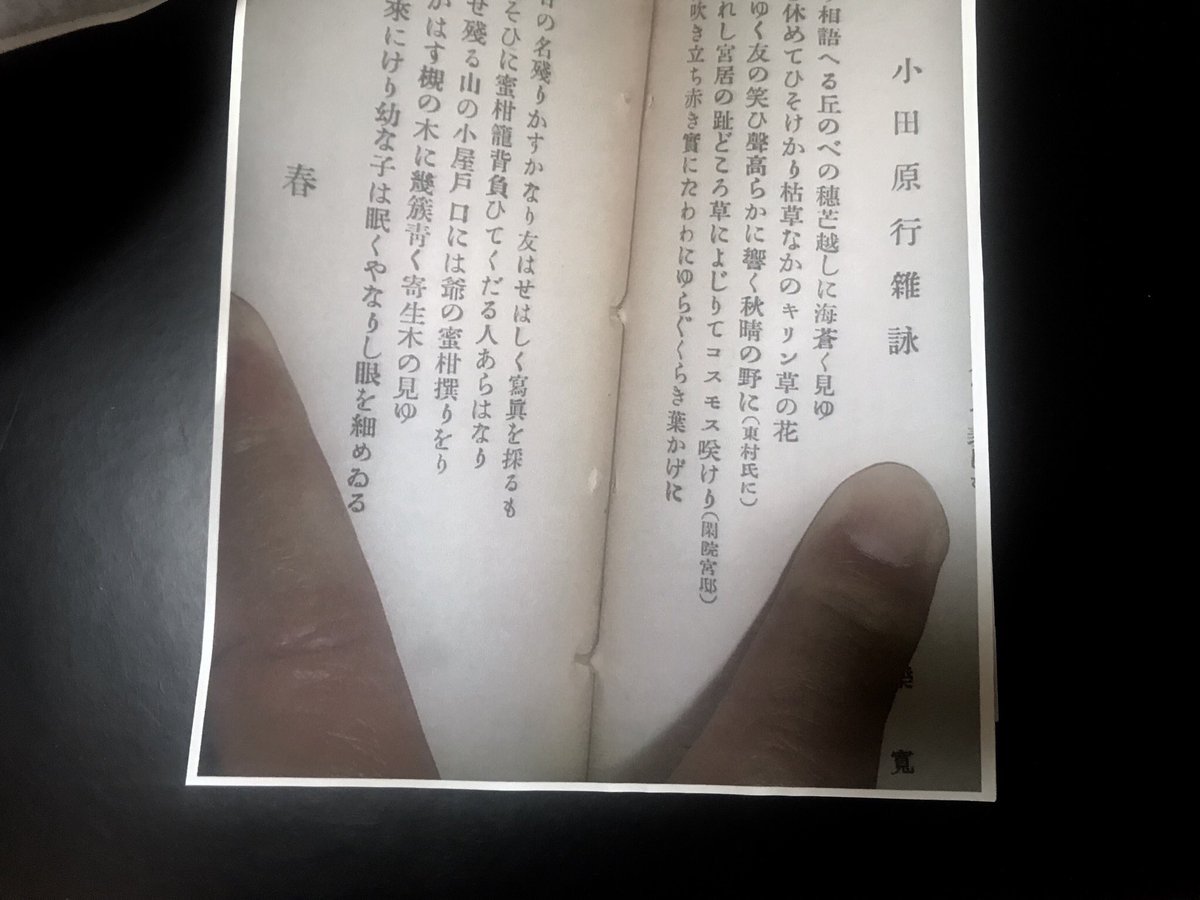 小田原行雜詠
寬
相語へる丘のべの穗芒越しに海蒼く見ゆ
休めてひそけかり枯草なかのキリン草の花
ゆく友の笑ひ聲高らかに響く秋晴の野に(東村氏に)
れし宮居の趾どころ草によじりてコスモス咲けり(閑院宮邸)
吹き立ち赤き實にたわわにゆらぐくらき葉かげに
の名殘りかすかなり友はせはしく寫眞を採るも
そひに蜜柑籠背負ひてくだる人あらはなり
せ殘る山の小屋戶口には爺の蜜柑撰りをり
がはす槻の木に幾簇靑く寄生木の見ゆ
來にけり幼な子は眠くやなりし眼を細めゐる
春